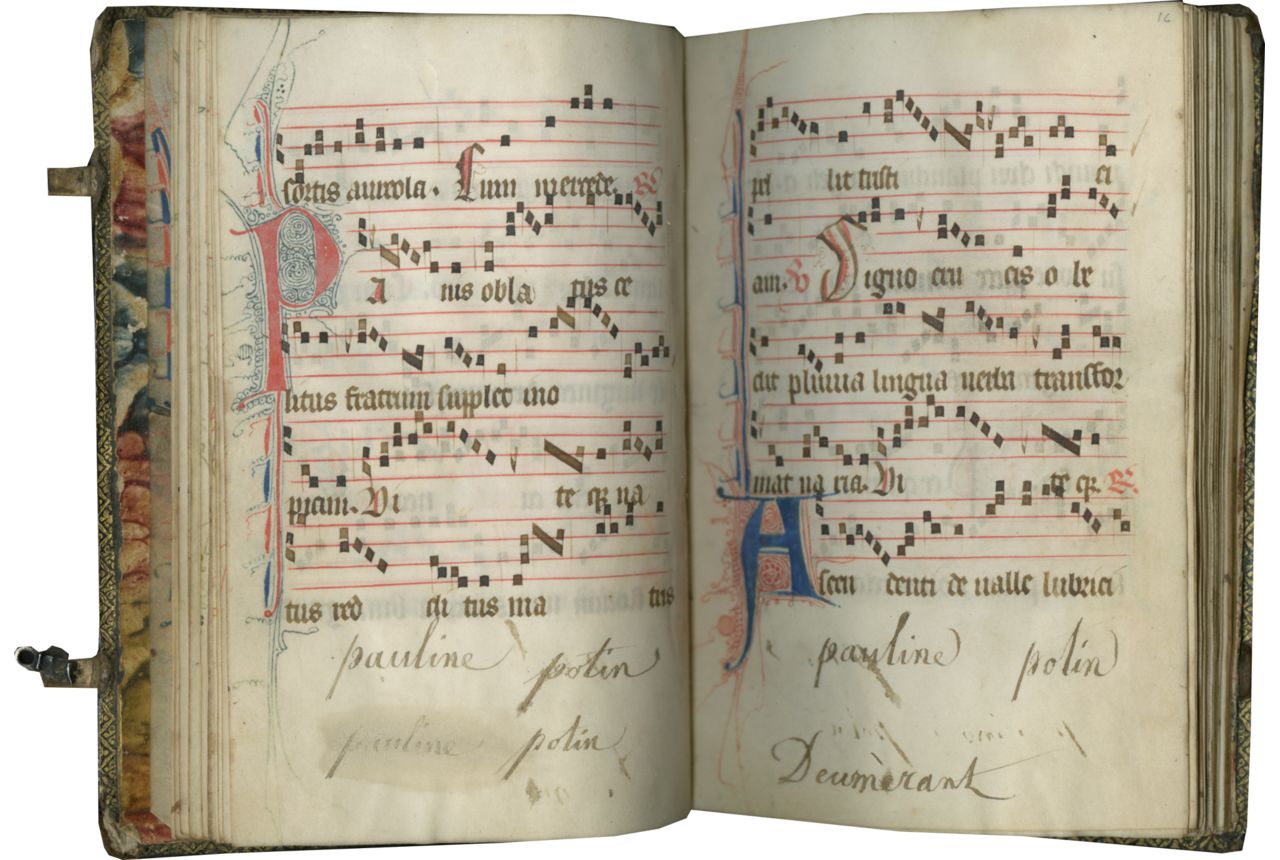 sortis aureola. Cum mercede. R
Panis oblatus ce
litus fratrum supplet ino
piam. Vi te que na
tus red di tus ma tris
pauline potin
pauline potin
16
pel lit tristi ci
am. V Digno cru cis o le
dit pluvia lingua verba transfor
mat va ria. Vi te que. R
Ascen denti de valle lubrici
pauline potin
Deumerant